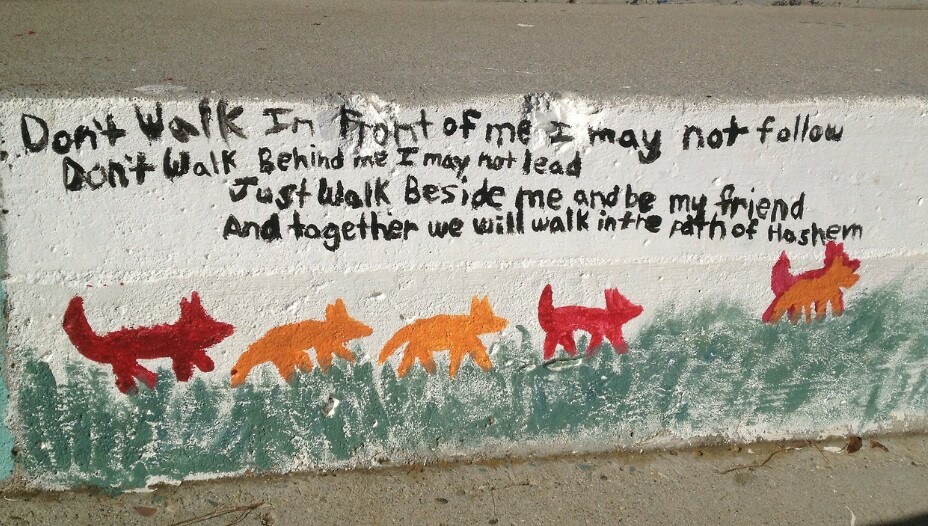 Don't Walk In Front of me I may not follow
Don't Walk Behind me I may not lead
Just Walk Beside me and be my friend
And together we will walk in the path of Hashem